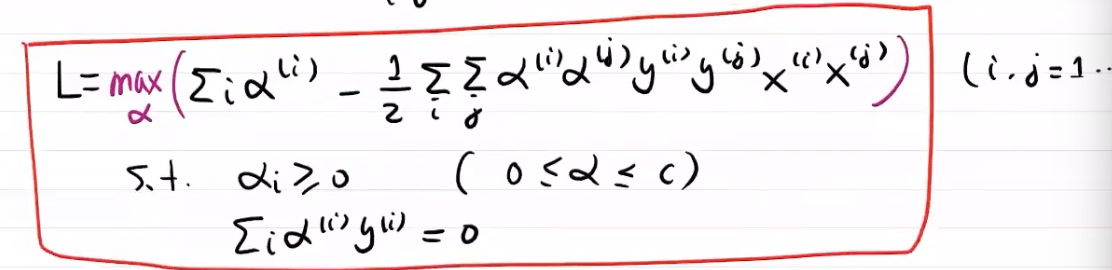 L = max_α (Σ_i α^(i) - 1/2 Σ_i Σ_j α^(i) α^(j) y^(i) y^(j) x^(i) x^(j)) (i, j = 1 ..
s.t. α_i ≥ 0 (0 ≤ α ≤ c)
Σ_i α^(i) y^(i) = 0